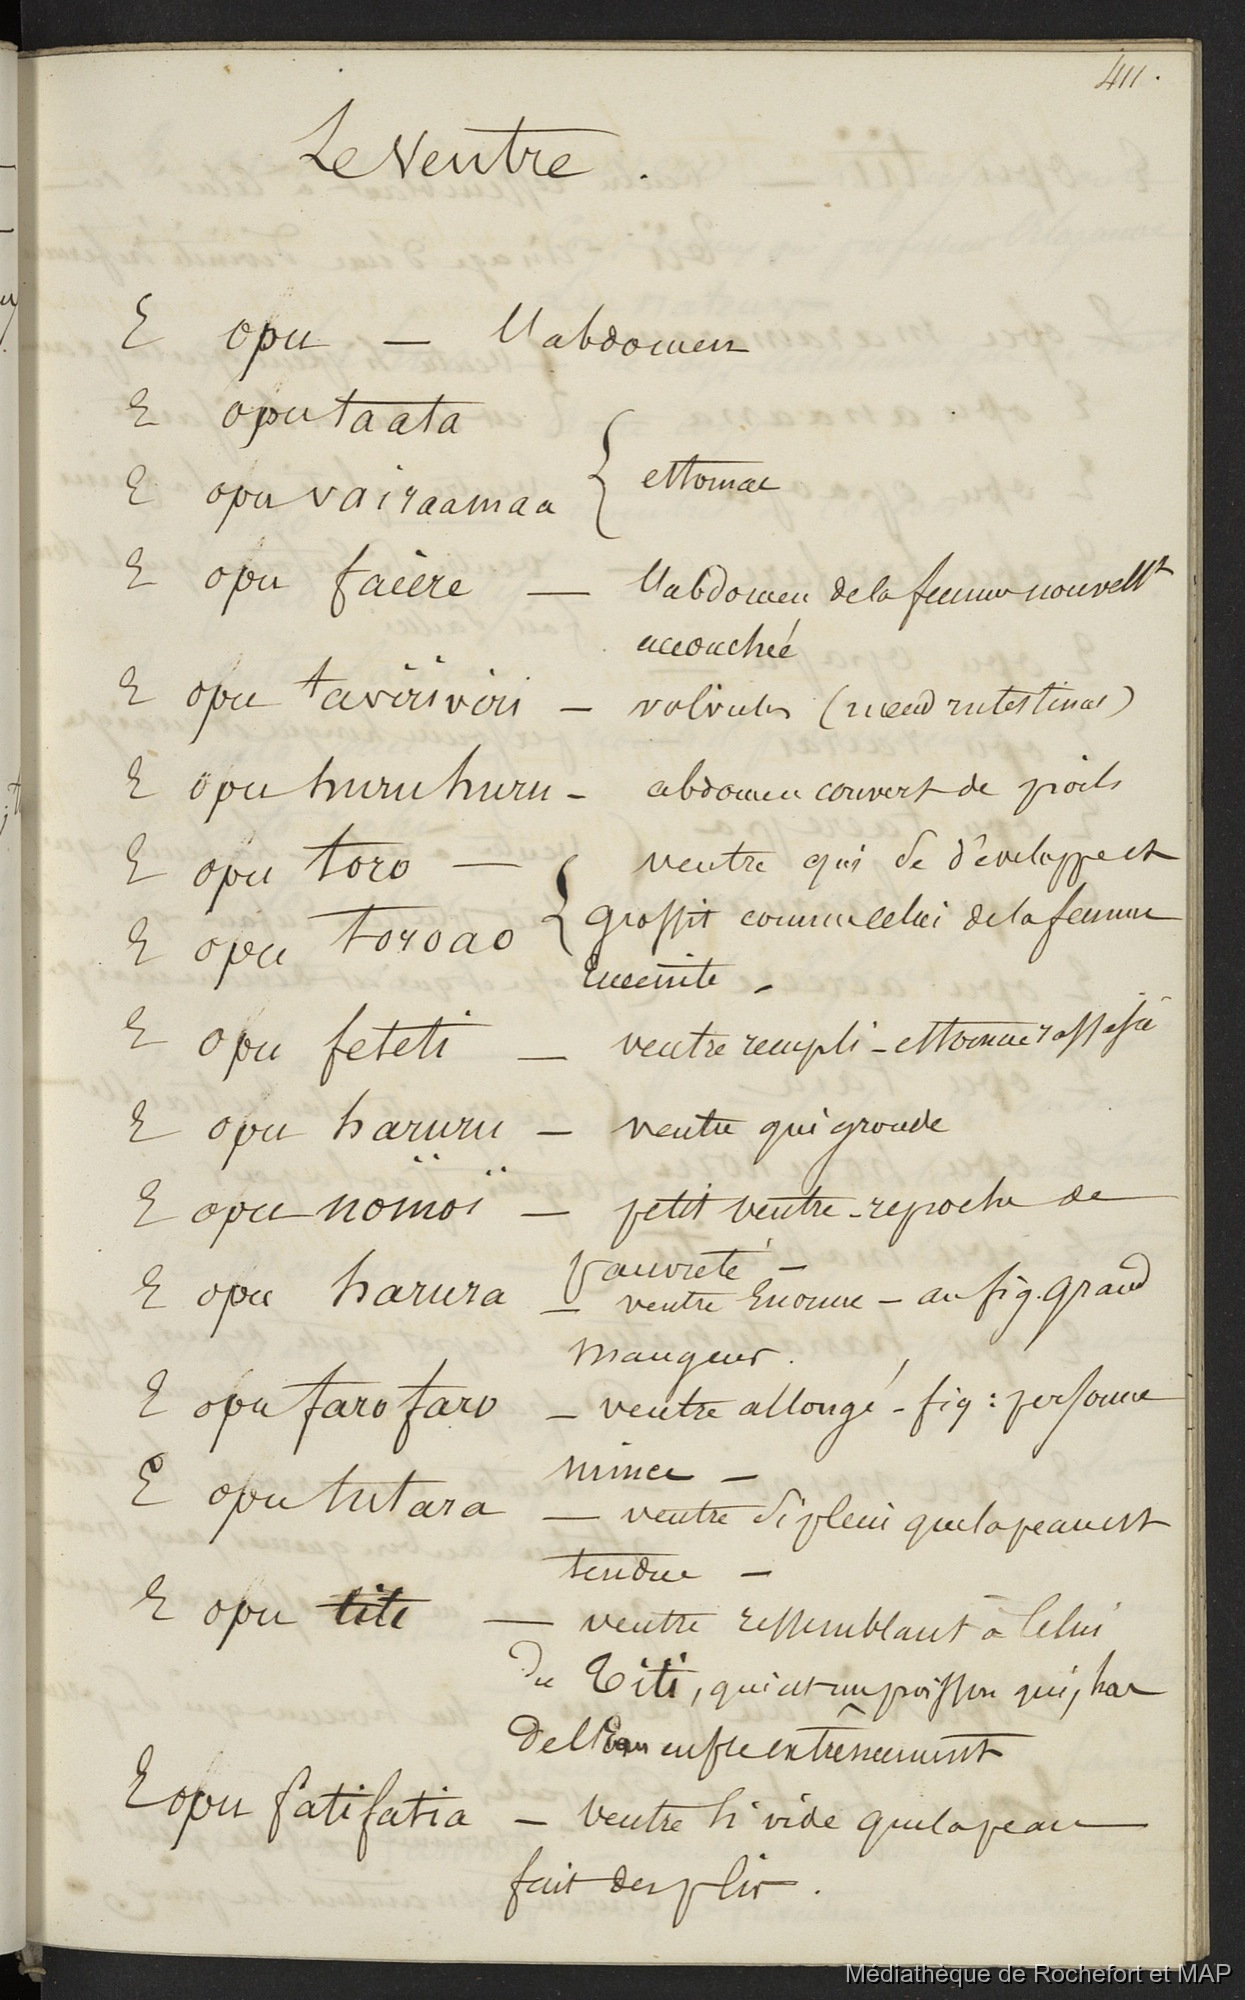 411.
Le Ventre.
E opu — l'abdomen
E opu taata
E opu vairaamaa { estomac
E opu faiere — l'abdomen de la femme nouvellt
accouchée
E opu taviriviri — volvulus (nœud intestinal)
E opu huruhuru - abdomen couvert de poils
E opu toro — ventre qui se développe et
E opu toroao { grossit comme celui de la femme
Enceinte -
E opu feteti — ventre rempli - estomac rassasié
E opu haruru — ventre qui gronde
E opu nomoï — petit ventre - reproche de
pauvreté —
E opu harura — ventre Enorme - au fig. grand
mangeur.
E opu farofaro — ventre allongé - fig : personne
mince —
E opu tutara — ventre si plein que la peau est
tendue —
E opu titi — ventre ressemblant à Celui
du Titi, qui est un poisson qui, hor
de l'Eau enfle extrêmement
E opu fatifatia — Ventre si vide que la peau
fait des plis.
Médiathèque de Rochefort et MAP